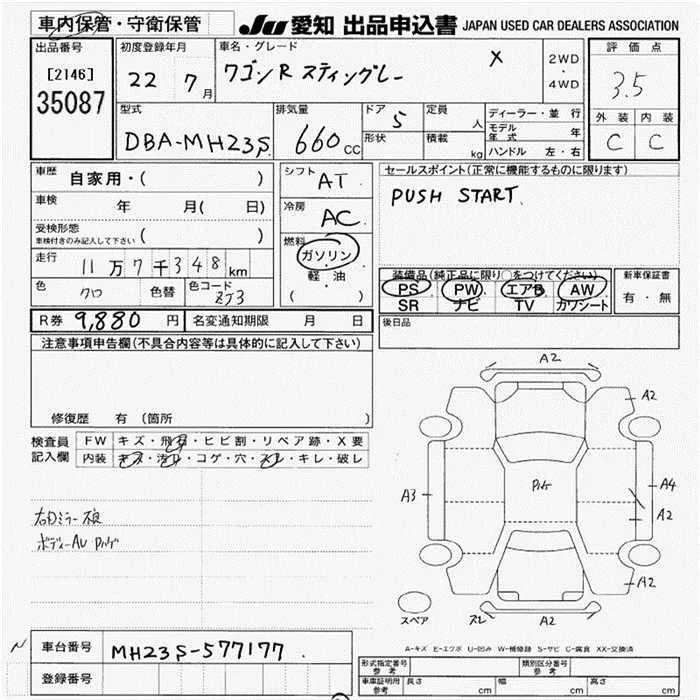 車内保管・守衛保管 JU 愛知 出品申込書 JAPAN USED CAR DEALERS ASSOCIATION
出品番号 [2146] 35087
初度登録年月 22 7月
車名・グレード ワゴンR スティングレー X
2WD・4WD
評価点 3.5
外装 内装
C C
型式 DBA-MH23S
排気量 660cc
ドア 5
形状
定員 人
積載 kg
ディーラー・並行
モデル年式 年
ハンドル 左・右
車歴 自家用・( )
車検 年 月( 日)
受検形態
車検付きのみ記入して下さい ( )
走行 11万7千348km
色 クロ 色替 色コード ZJ3
シフト AT
冷房 AC
燃料 ガソリン・軽油
( )
セールスポイント(正常に機能するものに限ります)
PUSH START
装備品(純正品に限り○をつけてください)
PS PW エアB AW
SR ナビ TV カワシート
新車保証書
有・無
後日品
R券 9,880円 名変通知期限 月 日
注意事項申告欄(不具合内容等は具体的に記入して下さい)
修復歴 有 (箇所 )
検査員記入欄
FW キズ・飛石・ヒビ割・リペア跡・X要
内装 キズ・汚れ・コゲ・穴・スレ・キレ・破レ
右Dミラー不良
A2
A2
A3
A4
A2
A2
スレ A2
スペア
A-キズ E-エクボ U-凹み W-補修跡 S-サビ C-腐食 XX-交換済
車台番号 MH23S-577177
登録番号
形式指定番号 参考
類別区分番号 参考
車庫証明用 参考 長さ cm 幅 cm 高さ cm